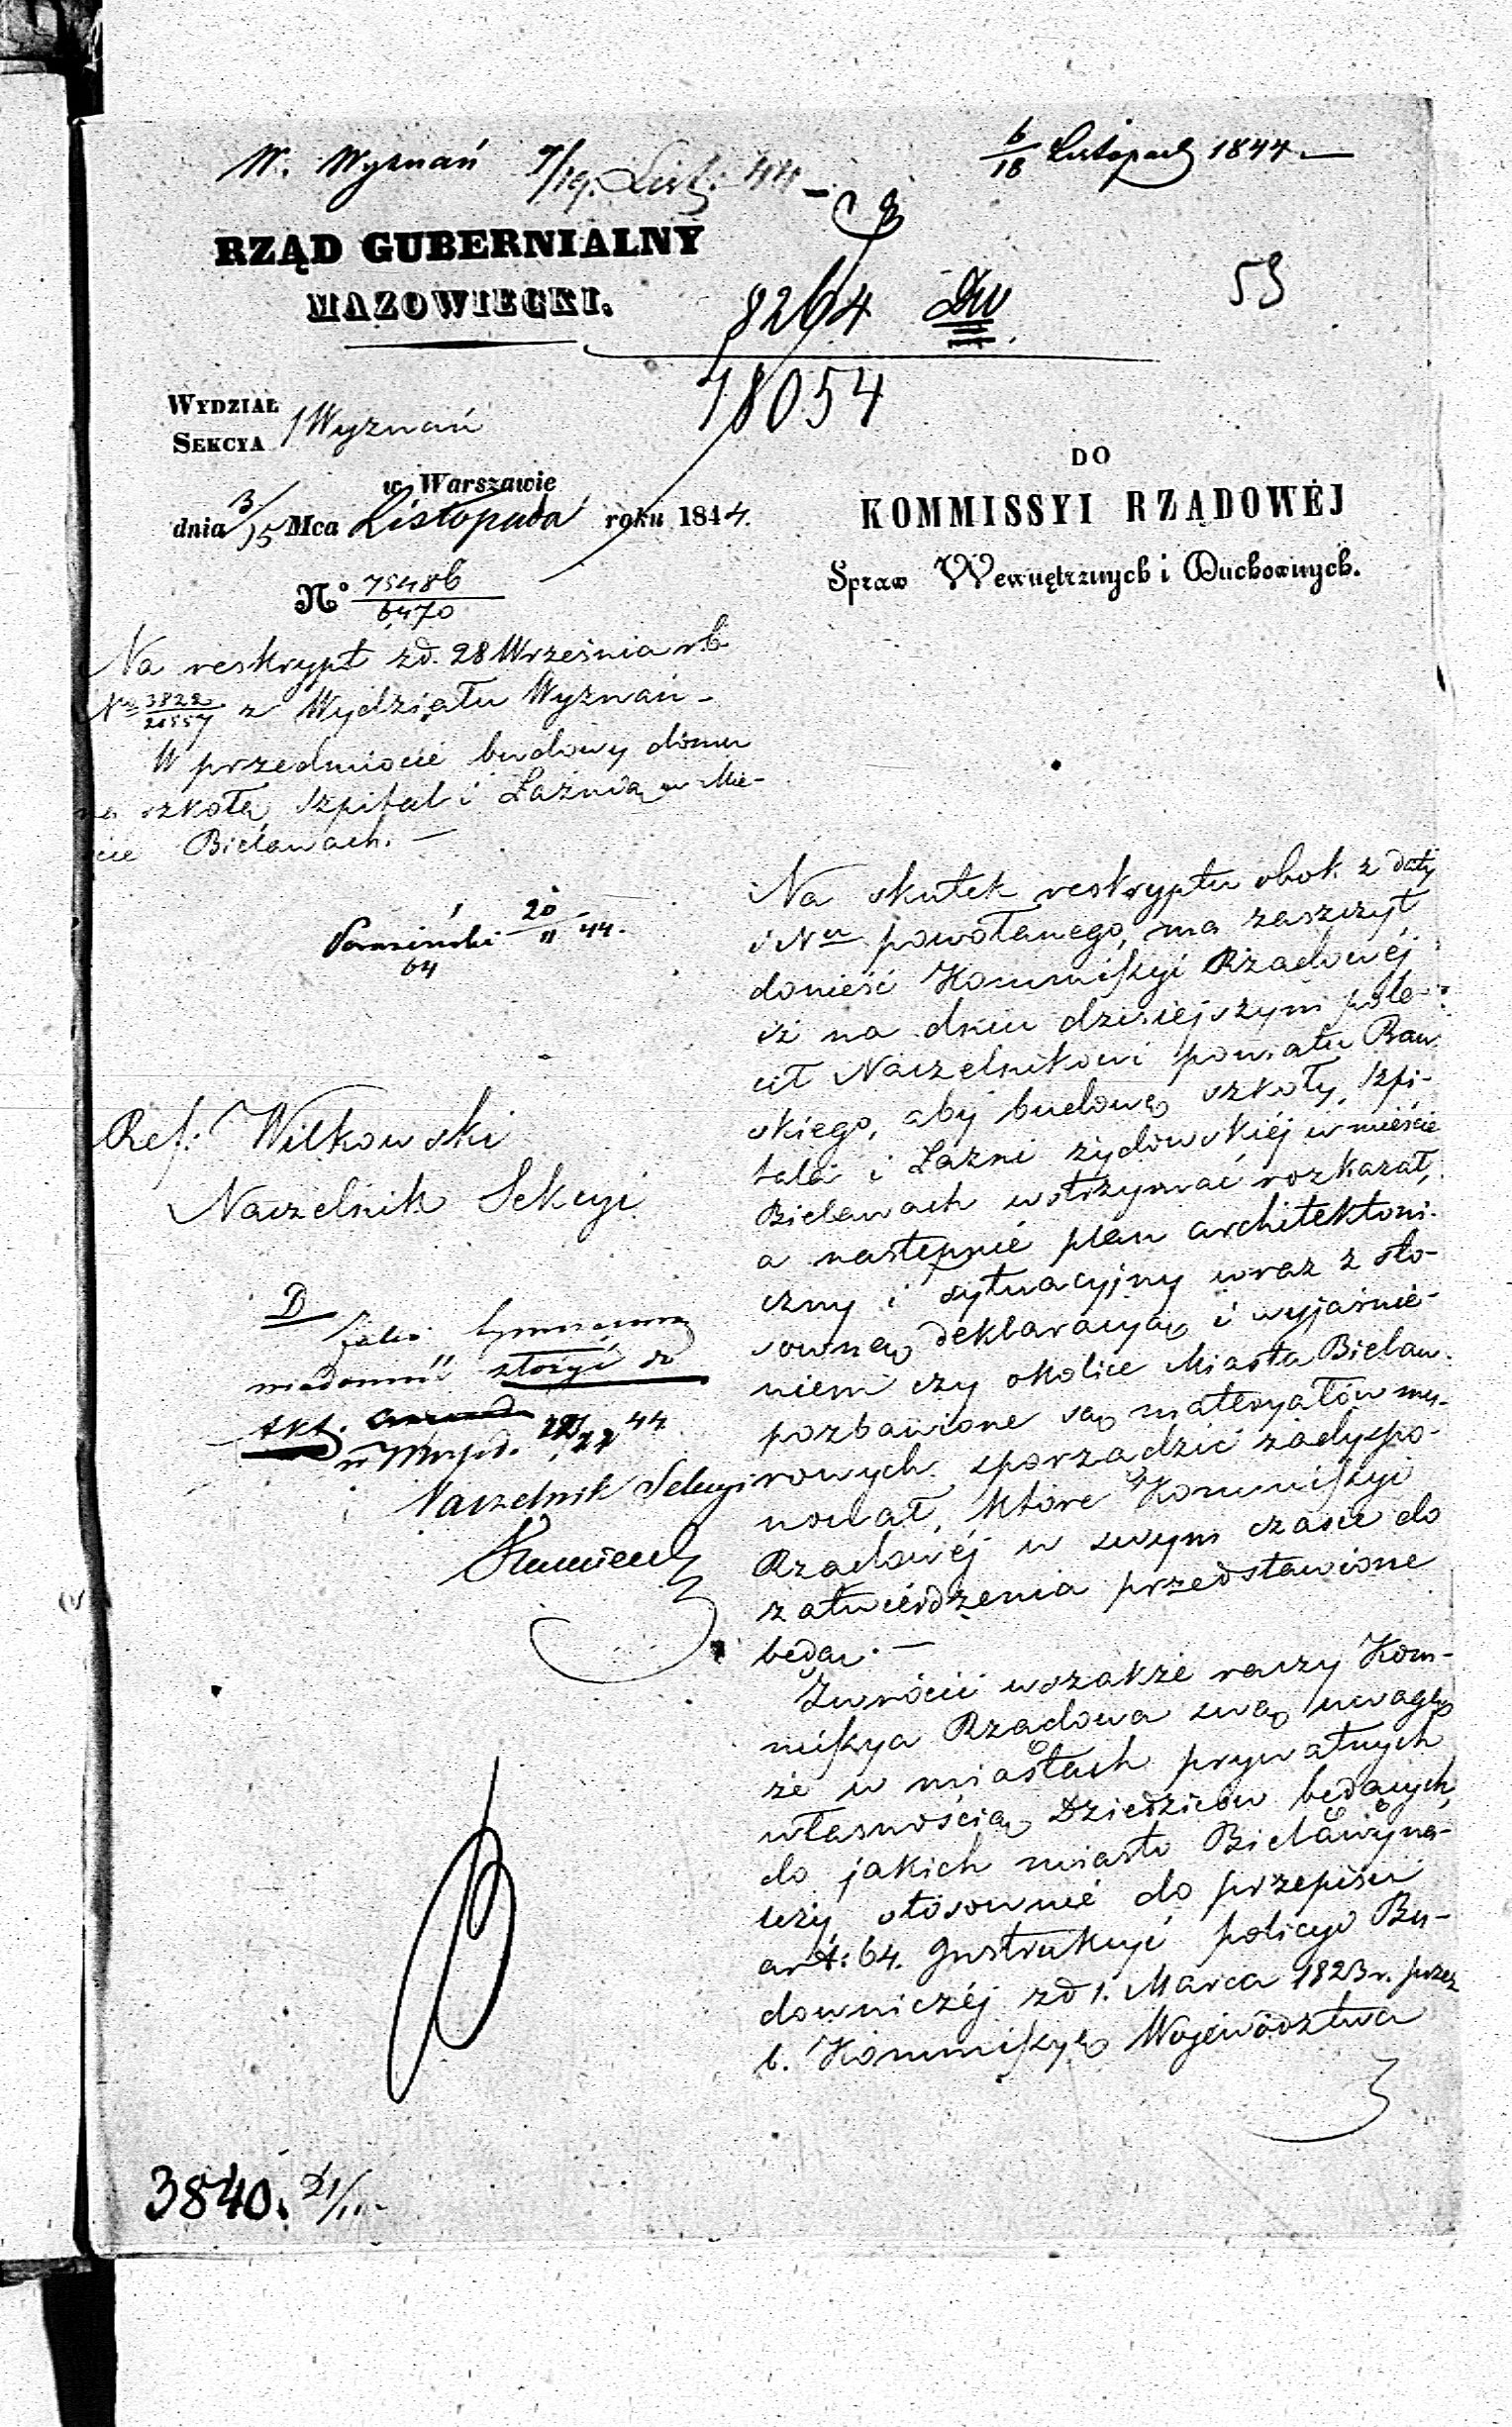 W. Wyznań 7/19. List. 44 –
6/18 Listopad 1844 —
RZĄD GUBERNIALNY
MAZOWIECKI.
8264
18054
53
WYDZIAŁ
SEKCYA Wyznań
w Warszawie
dnia 3/15 Mca Listopada roku 1844.
N° 75486/6470
DO
KOMMISSYI RZĄDOWÉJ
Spraw Wewnętrznych i Duchownych.
Na reskrypt zd. 28 Września r.b.
Nr 3822/21557 z Wydziału Wyznań –
W przedmiocie budowy domu
na szkołę, Szpital i Łaźnią w Mie-
ście Bielawach. —
20/11 44.
64
Ref: Wilkowski
Naczelnik Sekcyi
D
wiadomość złożyć do
Akt.
44
Naczelnik Sekcyi
Na skutek reskryptu obok z daty
i Nru powołanego, ma zaszczyt
donieść Kommissyi Rządowéj
iż na dniu dzisiejszym pole-
cił Naczelnikowi powiatu Raw-
skiego, aby budowę szkoły, Szpi-
tala i Łaźni żydowskiéj w mieście
Bielawach wstrzymać rozkazał,
a następnie plan architektoni-
czny i sytuacyjny wraz z sto-
sowną deklaracyą i wyjaśnie-
niem czy okolice Miasta Bielaw
pozbawione są materyałów mu-
rowych, sporządzić zadyspo-
nował, które Kommissyi
Rządowéj w swym czasie do
zatwierdzenia przedstawione
będą. —
Zwrócić wszakże raczy Kom-
missya Rządowa swą uwagę
że w miastach prywatnych
własnością Dziedziców będących,
do jakich miasto Bielawy na-
leży, stosownie do przepisu
art: 64. Instrukcyi policyi Bu-
downiczéj zd 1. Marca 1823 r. przez
b. Kommissyę Województwa
3840. 21/11